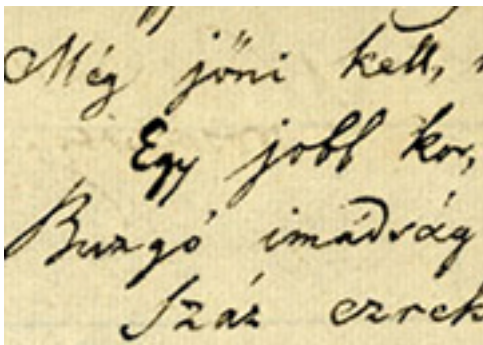 Még jőni kell,
Egy jobb kor,
Buzgó imádság
Száz ezrek